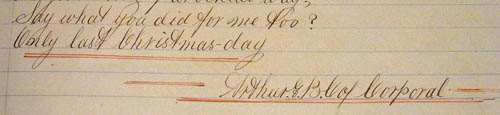 Say what you did for me too?
Only last Christmas-day
Arthur. E. B. Cof Corporal